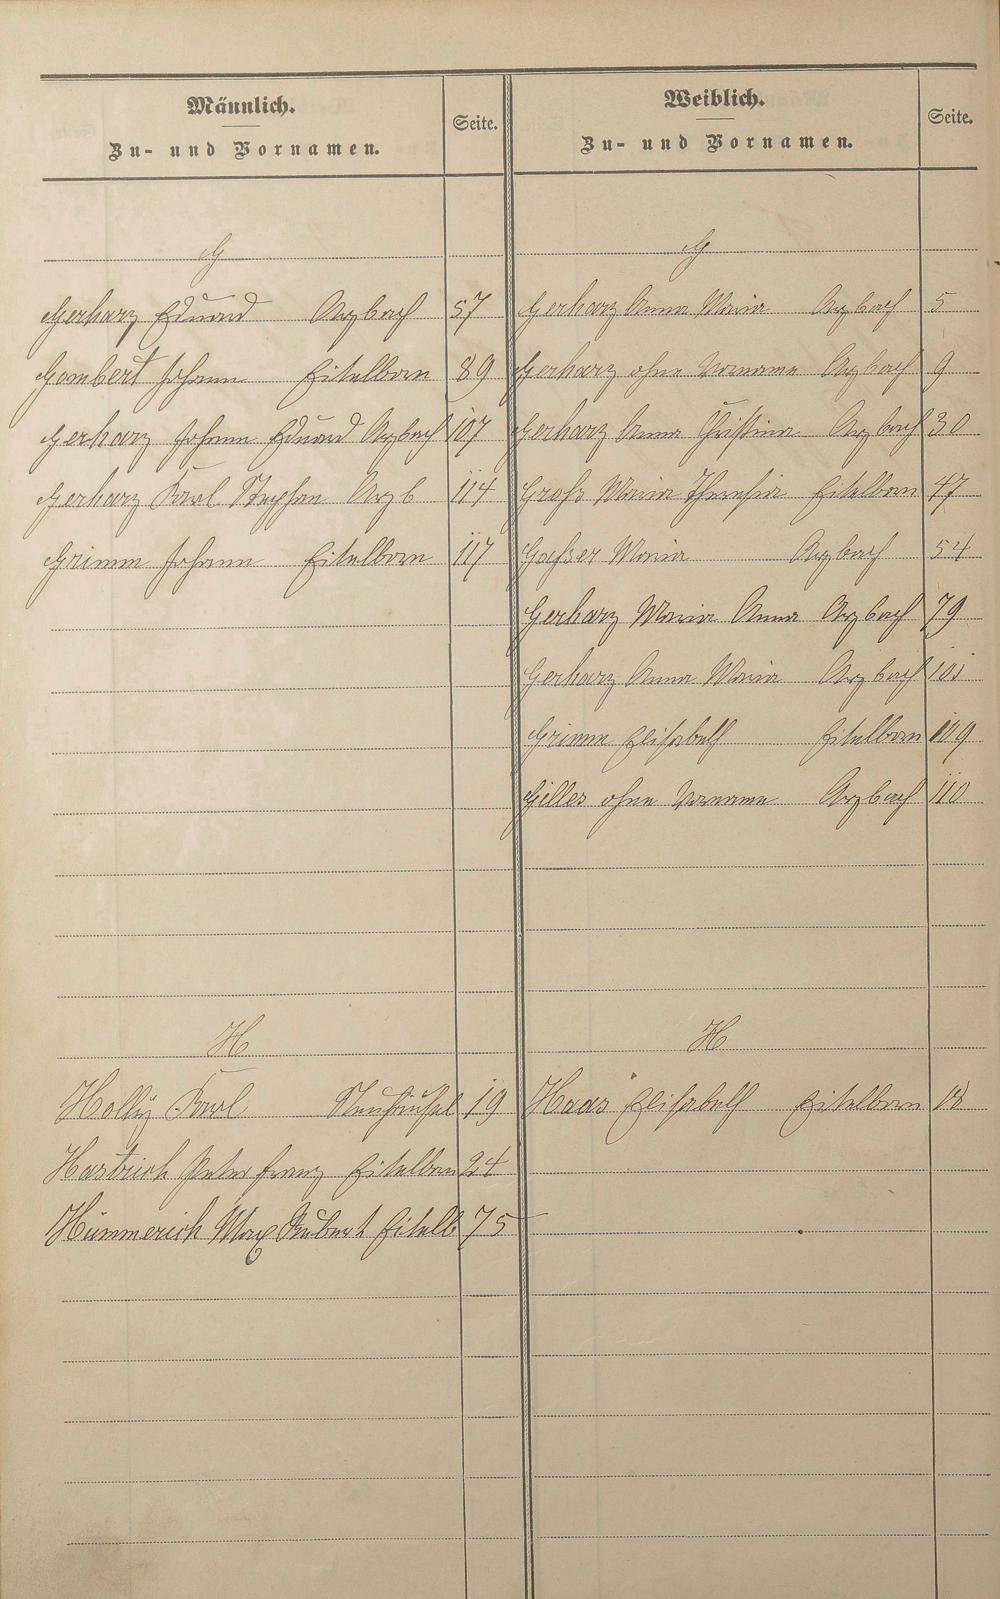 Männlich.
Zu- und Vornamen.
Seite.
G
Gerharz Eduard Arzbach 57
Gombert Johann Eitelborn 89
Gerharz Johann Eduard Arzbach 107
Gerharz Karl Stephan Arzb 114
Grimm Johann Eitelborn 117
H
Holly Karl Neuhäusel 19
Hastrich Peter Franz Eitelborn 24
Hümmerich Max Hubert Eitelb 75
Weiblich.
Zu- und Vornamen.
Seite.
G
Gerharz Anna Maria Arzbach 5
Gerharz ohne Vorname Arzbach 9
Gerharz Anna Christina Arzbach 30
Groß Maria Theresia Eitelborn 47
Maria Arzbach 54
Gerharz Maria Anna Arzbach 79
Gerharz Anna Maria Arzbach 101
Grimm Elisabeth Eitelborn 109
Gilles ohne Vorname Arzbach 110
H
Haas Elisabeth Eitelborn